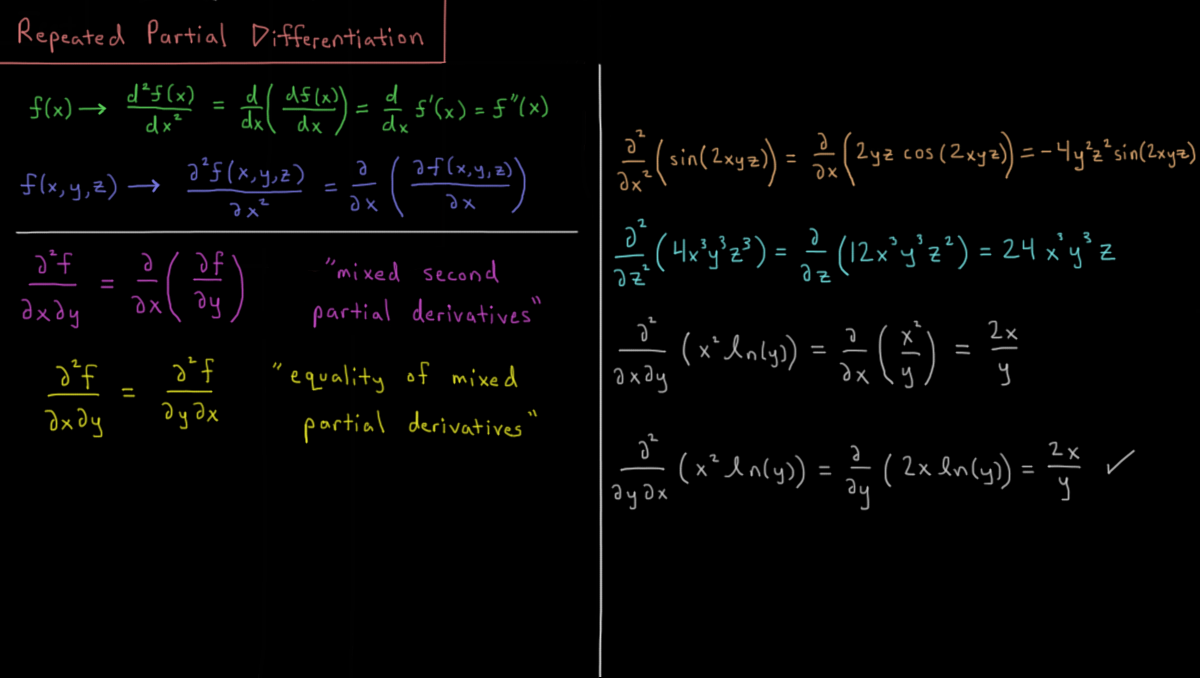 Repeated Partial Differentiation
f(x) → d²f(x)/dx² = d/dx (df(x)/dx) = d/dx f'(x) = f''(x)
f(x,y,z) → ∂²f(x,y,z)/∂x² = ∂/∂x (∂f(x,y,z)/∂x)
∂²f/∂x∂y = ∂/∂x (∂f/∂y) "mixed second
partial derivatives"
∂²f/∂x∂y = ∂²f/∂y∂x "equality of mixed
partial derivatives"
∂²/∂x² (sin(2xyz)) = ∂/∂x (2yz cos(2xyz)) = -4y²z² sin(2xyz)
∂²/∂z² (4x³y³z³) = ∂/∂z (12x³y³z²) = 24x³y³z
∂²/∂x∂y (x² ln(y)) = ∂/∂x (x²/y) = 2x/y
∂²/∂y∂x (x² ln(y)) = ∂/∂y (2x ln(y)) = 2x/y ✓